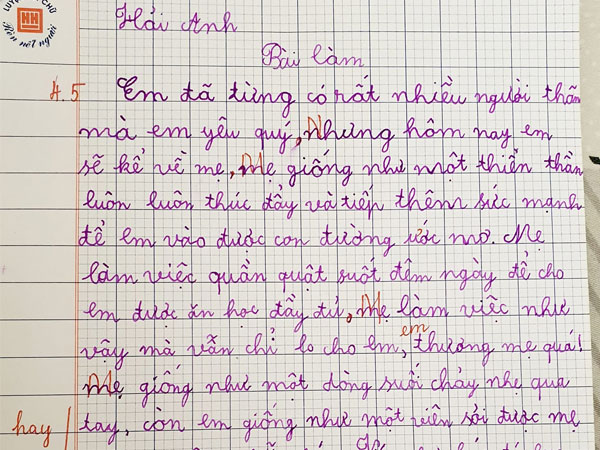 LUYỆN CHỮ
HH
Rèn nết người
Hải Anh
Bài làm
4.5 Em đã từng có rất nhiều người thân
mà em yêu quý, Nhưng hôm nay em
sẽ kể về mẹ, Mẹ giống như một thiên thần
luôn luôn thúc đẩy và tiếp thêm sức mạnh
để em vào được con đường ước mơ. Mẹ
làm việc quần quật suốt đêm ngày để cho
em được ăn học đầy đủ, Mẹ làm việc như
vậy mà vẫn chỉ lo cho em, em thương mẹ quá!
Mẹ giống như một dòng suối chảy nhẹ qua
hay / tay, còn em giống như một viên sỏi được mẹ